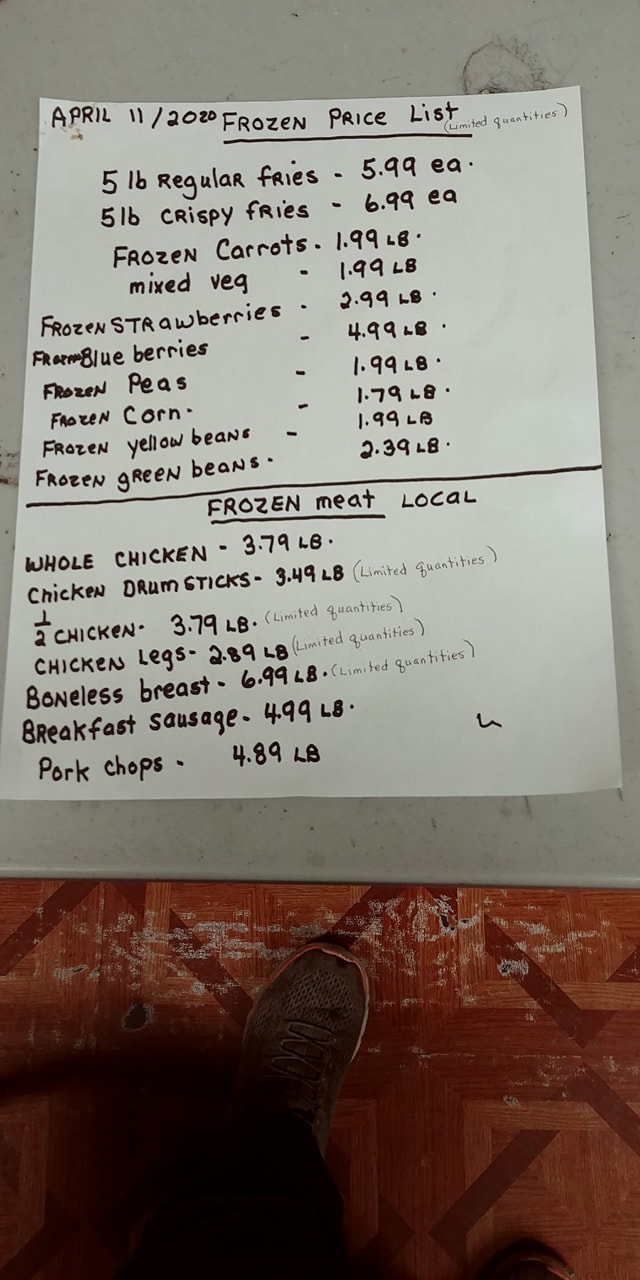 APRIL 11/2020 FROZEN PRICE List (Limited quantities)
5 lb Regular fries - 5.99 ea.
5 lb CRISPY fRIES - 6.99 ea
FROZEN Carrots - 1.99 LB.
mixed veg - 1.99 LB
FROZEN STRAwberries - 2.99 LB.
Blue berries - 4.99 LB.
FROZEN Peas - 1.99 LB.
FROZEN Corn - 1.79 LB.
FROZEN yellow beans - 1.99 LB
FROZEN gREEN beans. 2.39 LB.
FROZEN meat LOCAL
WHOLE CHICKEN - 3.79 LB.
Chicken DRUMSTICKS - 3.49 LB (Limited quantities)
1/2 CHICKEN - 3.79 LB. (Limited quantities)
CHICKEN Legs - 2.89 LB (Limited quantities)
BONELESS breast - 6.99 LB. (Limited quantities)
BREAKfast sausage - 4.99 LB.
Pork chops - 4.89 LB